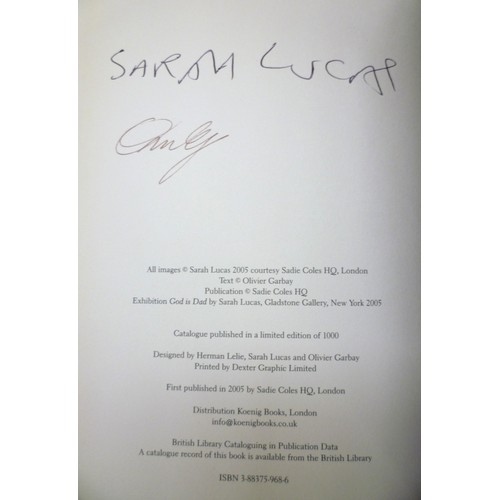 SARAH LUCAS
All images © Sarah Lucas 2005 courtesy Sadie Coles HQ, London
Text © Olivier Garbay
Publication © Sadie Coles HQ
Exhibition God is Dad by Sarah Lucas, Gladstone Gallery, New York 2005
Catalogue published in a limited edition of 1000
Designed by Herman Lelie, Sarah Lucas and Olivier Garbay
Printed by Dexter Graphic Limited
First published in 2005 by Sadie Coles HQ, London
Distribution Koenig Books, London
info@koenigbooks.co.uk
British Library Cataloguing in Publication Data
A catalogue record of this book is available from the British Library
ISBN 3-88375-968-6